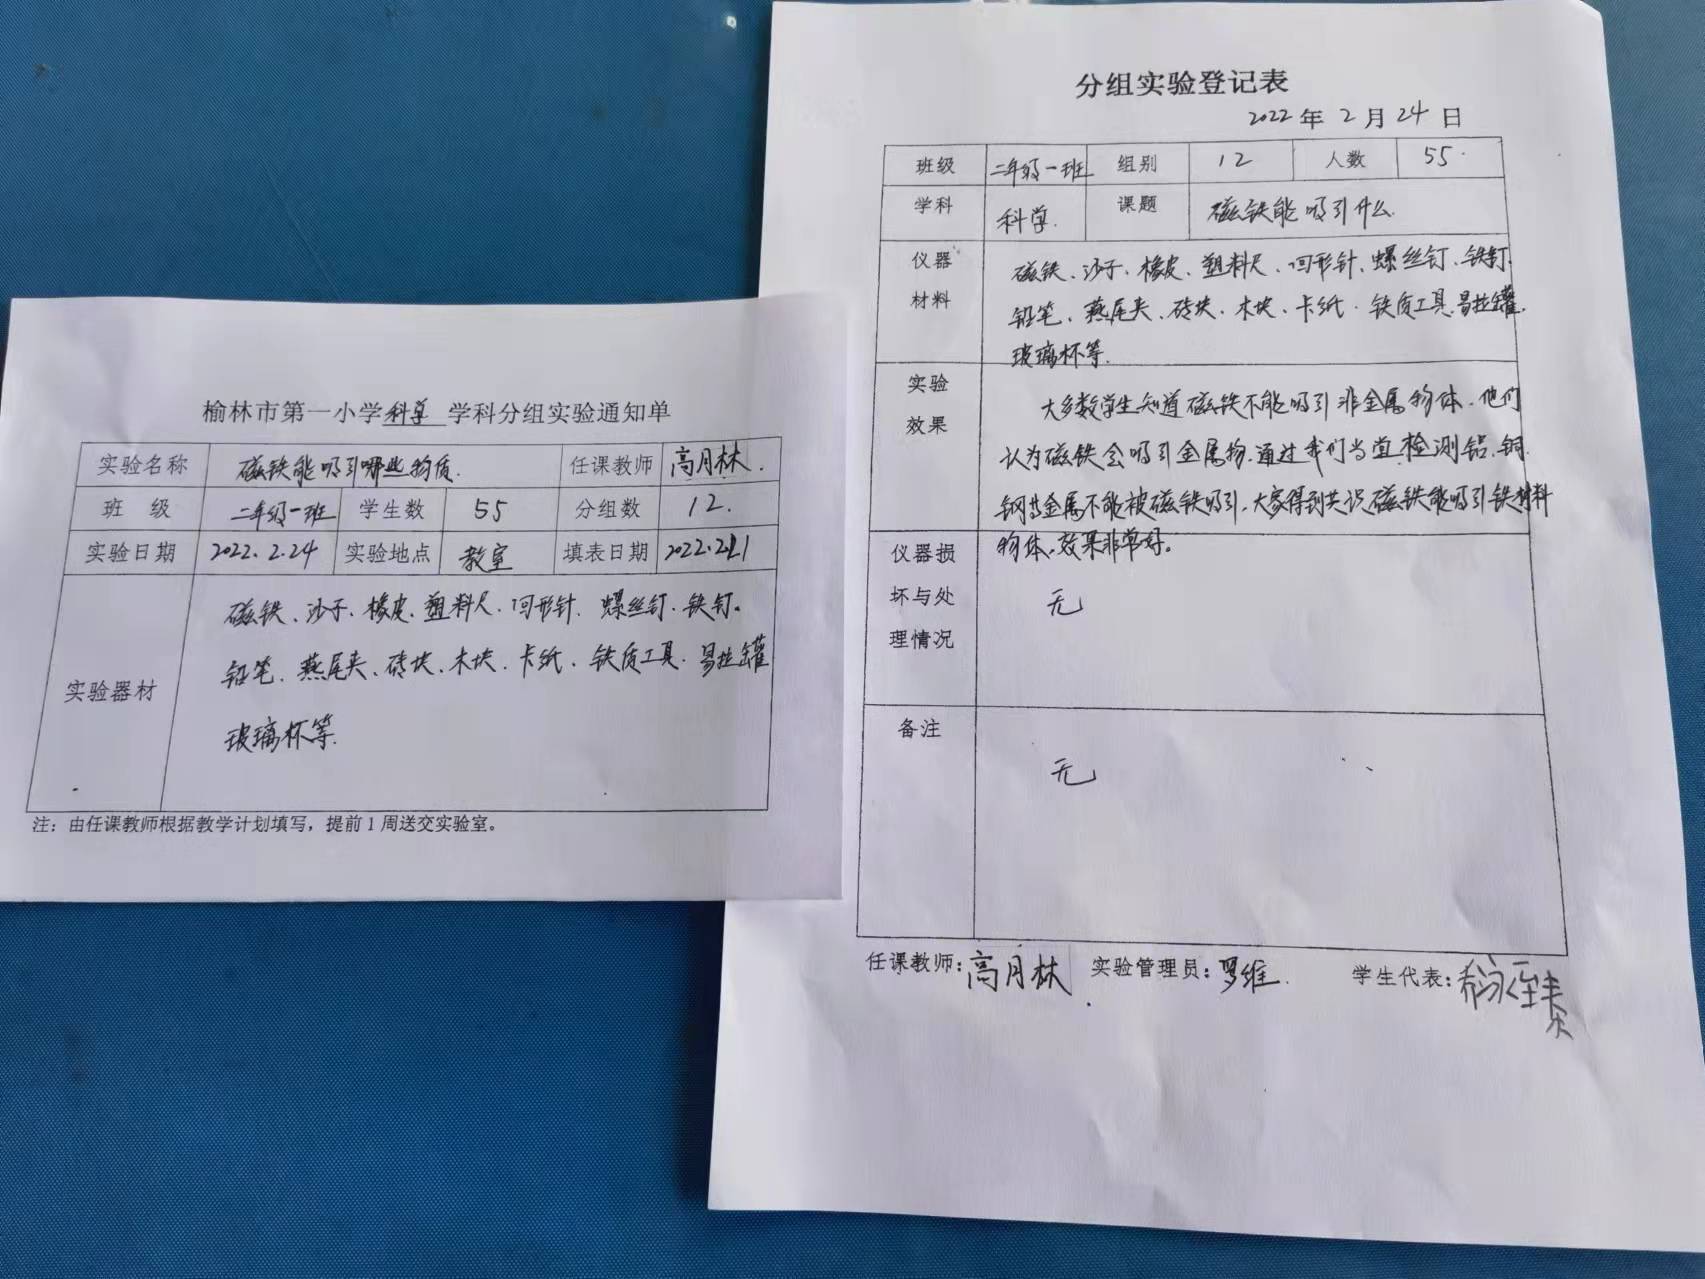 榆林市第一小学科学 学科分组实验通知单
实验名称 磁铁能吸引哪些物质. 任课教师 高月林.
班 级 二年级一班 学生数 55 分组数 12.
实验日期 2022.2.24 实验地点 教室 填表日期 2022.2.21
实验器材
磁铁、沙子、橡皮、塑料尺、回形针、螺丝钉、铁钉。
铅笔、燕尾夹、砖块、木块、卡纸、铁质工具、易拉罐
玻璃杯等.
注：由任课教师根据教学计划填写，提前1周送交实验室。
分组实验登记表
2022 年 2 月 24 日
班级 二年级一班 组别 12 人数 55.
学科 科学. 课题 磁铁能吸引什么.
仪器
材料
磁铁、沙子、橡皮、塑料尺、回形针、螺丝钉、铁钉.
铅笔、燕尾夹、砖块、木块、卡纸、铁质工具.易拉罐.
玻璃杯等.
实验
效果
大多数学生知道磁铁不能吸引非金属物体.他们
认为磁铁会吸引金属物.通过我们当堂检测铝、铜.
金属不能被磁铁吸引.大家得到共识磁铁能吸引铁材料
物体.效果非常好。
仪器损
坏与处
理情况
无
备注
无
任课教师：高月林 实验管理员：罗维. 学生代表：